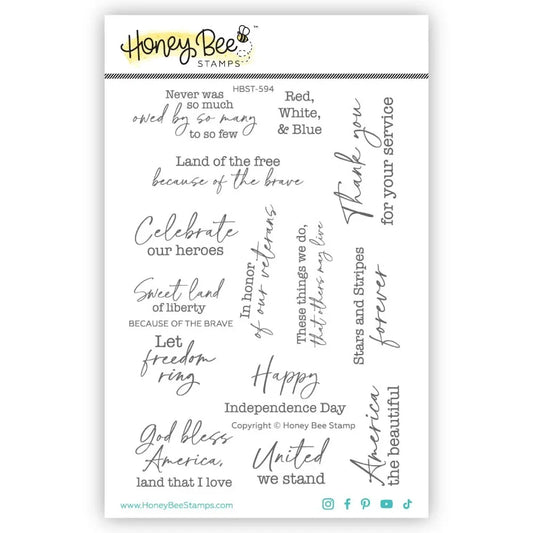 Honey Bee
STAMPS
™
HBST-594
Never was
so much
owed by so many
to so few
Red,
White,
& Blue
Thank you
for your service
Land of the free
because of the brave
Celebrate
our heroes
In honor
of our veterans
These things we do,
that others may live
Stars and Stripes
forever
Sweet land
of liberty
BECAUSE OF THE BRAVE
Let
freedom
ring
Happy
Independence Day
Copyright © Honey Bee Stamp
America
the beautiful
God bless
America,
land that I love
United
we stand
www.HoneyBeeStamps.com